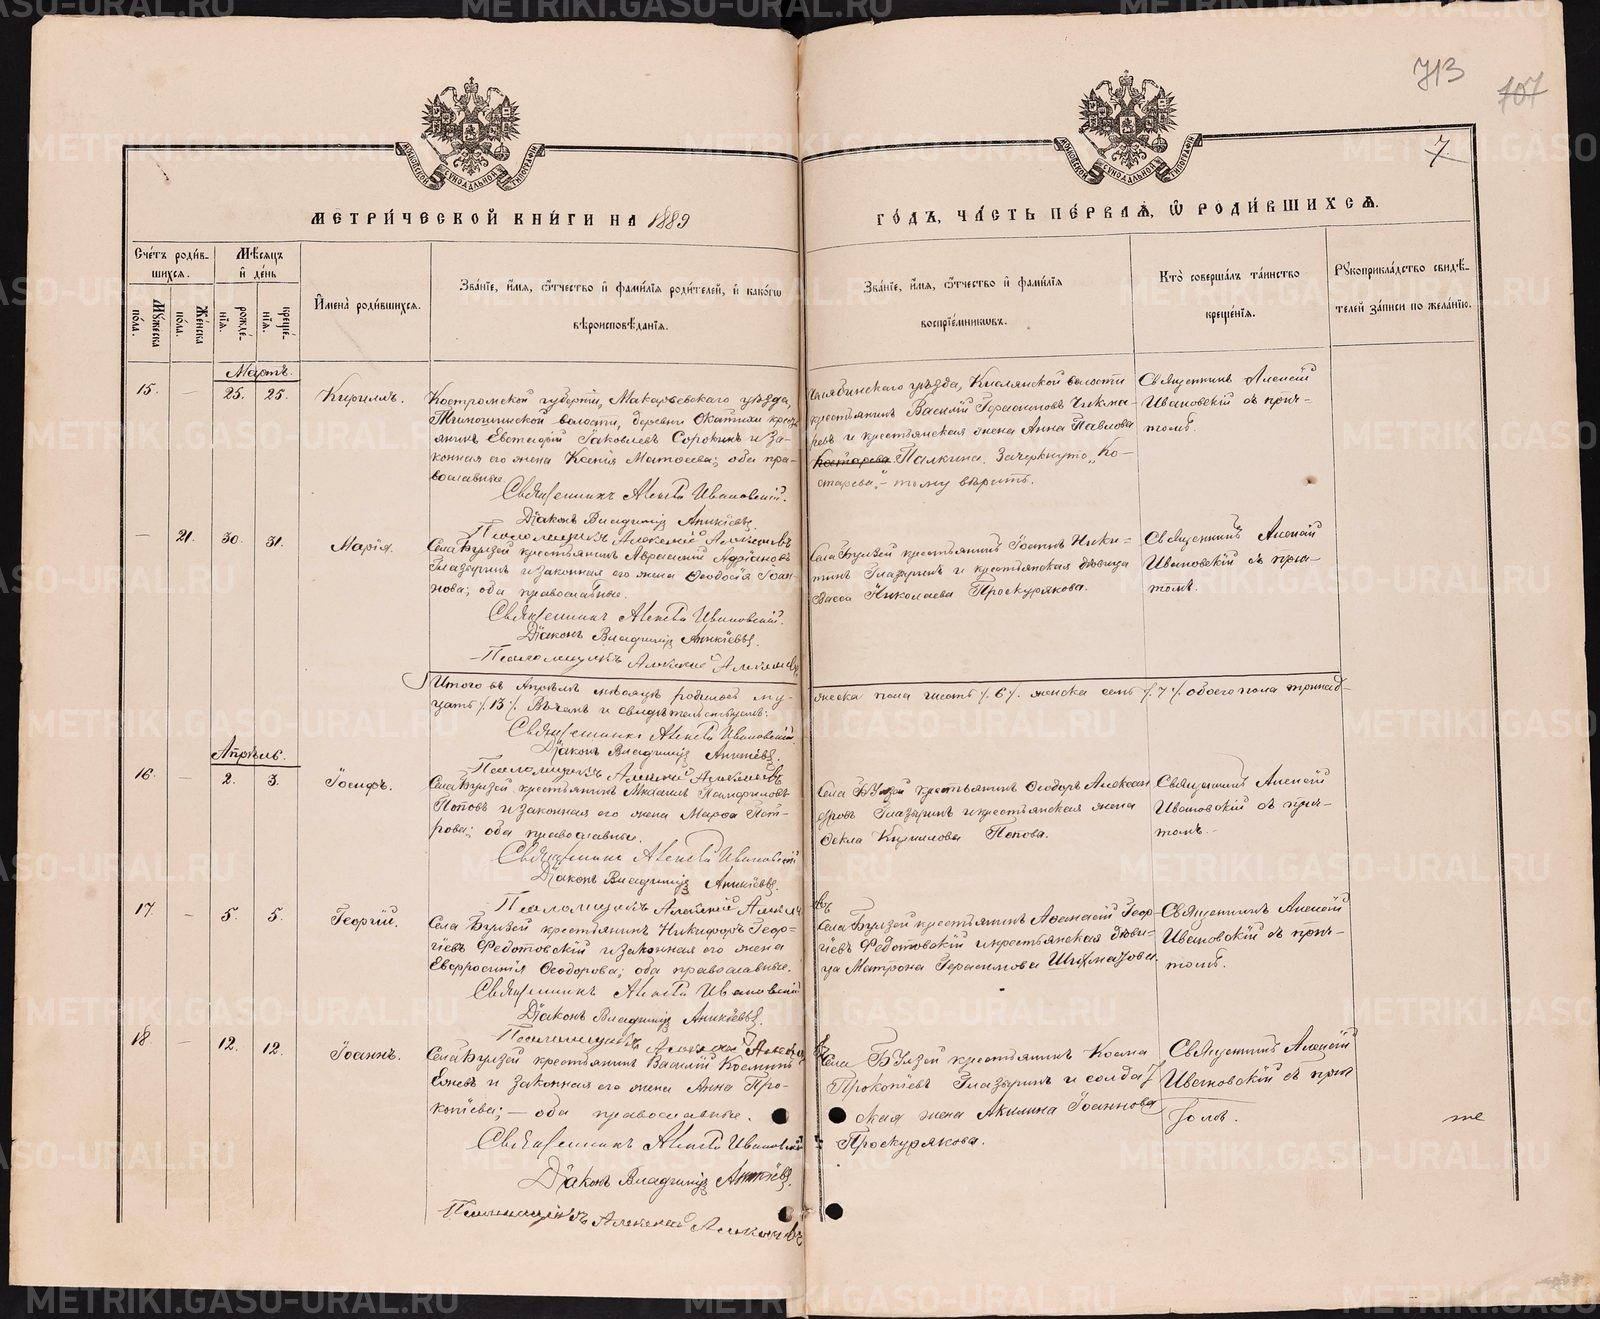 713
107
7
МОСКОВСКОЙ СѴНОДАЛЬНОЙ ТИПОГРАФІИ
МОСКОВСКОЙ СѴНОДАЛЬНОЙ ТИПОГРАФІИ
МЕТРИ́ЧЕСКОЙ КНИ́ГИ НА 1889
ГО́ДЪ, ЧА́СТЬ ПЕ́РВАѦ, Ѡ РОДИ́ВШИХСѦ.
Сче́тъ роди́в-
шихсѧ.
Мѣ́сѧцъ
и҆ де́нь
Мꙋ́жеска по́ла.
Же́нска по́ла.
рожде́-
нїѧ.
креще́-
нїѧ.
И҆мена̀ роди́вшихсѧ.
Зва́нїе, и҆́мѧ, ѻ҆́тчество и҆ фамі́лїѧ роди́телей, и҆ како́гѡ
вѣроисповѣ́данїѧ.
Зва́нїе, и҆́мѧ, ѻ҆́тчество и҆ фамі́лїѧ
воспрїе́мникѡвъ.
Кто̀ соверша́лъ та́инство
креще́нїѧ.
Рꙋкоприкла́дство свидѣ́-
телей за́писи по жела́нїю.
Мартъ.
15. — 25. 25. Кириллъ.
Костромской губерніи, Макарьевскаго уѣзда,
волости, деревни кресть
янинъ Евстафій Іаковлевъ Сорокинъ и за-
конная его жена Ксенія Матѳеева; оба пра-
вославные
Священникъ Алексѣй Ивановскій.
Діаконъ Владиміръ Аникіевъ.
Псаломщикъ Алексѣй
Челябинскаго уѣзда, Кислянской волости
крестьянинъ Василій Герасимовъ Чикма-
ревъ и крестьянская жена Анна Павлова
Костарева Палкина. Зачеркнуто „Ко-
старева“ – тому вѣрить.
Священникъ Алексій
Ивановскій съ прич-
томъ.
— 21. 30. 31. Марія.
Села Бүлзей крестьянинъ Аврамій Адріановъ
Глазыринъ и законная его жена Ѳеодосія Іоан-
нова; оба православные.
Священникъ Алексѣй Ивановскій.
Діаконъ Владиміръ Аникіевъ.
Псаломщикъ Алексѣй
Села Булзей крестьянинъ Іоаннъ Ники-
тинъ Глазыринъ и крестьянская дѣвица
Васса Николаева Проскурякова.
Священникъ Алексій
Ивановскій съ прич-
томъ.
Итого въ Апрѣлѣ мѣсяцѣ родилось му-
жеска пола шесть /. 6 /. женска семь /. 7 /. обоего пола тринад-
цать /. 13 /. Въ чемъ и свидѣтельствуемъ:
Священникъ Алексѣй Ивановскій.
Діаконъ Владиміръ Аникіевъ.
Псаломщикъ Алексѣй
Апрѣль.
16. — 2. 3. Іосифъ.
Села Булзей крестьянинъ Михаилъ Памфиловъ
Поповъ и законная его жена Марѳа Пет-
рова; оба православные.
Священникъ Алексѣй Ивановскій
Діаконъ Владиміръ Аникіевъ.
Псаломщикъ Алексѣй
Села Булзей крестьянинъ Ѳеодоръ Алексан
дровъ Глазыринъ и крестьянская жена
Ѳекла Кириллова Попова.
Священникъ Алексій
Ивановскій съ прич-
томъ.
17. — 5. 5. Георгій.
Села Булзей крестьянинъ Никифоръ Геор-
гіевъ Федотовскій и законная его жена
Евфросинія Ѳеодорова; оба православные.
Священникъ Алексѣй Ивановскій
Діаконъ Владиміръ Аникіевъ.
Псаломщикъ Алексѣй
Села Булзей крестьянинъ Аѳанасій Геор-
гіевъ Федотовскій и крестьянская дѣви-
ца Матрона Герасимова
Священникъ Алексій
Ивановскій съ прич-
томъ.
18 — 12. 12. Іоаннъ.
Села Булзей крестьянинъ Василій Косминъ
и законная его жена Анна Про-
копіева; — оба православные.
Священникъ Алексѣй Ивановскій
Діаконъ Владиміръ Аникіевъ.
Псаломщикъ Алексѣй
Села Булзей крестьянинъ Косма
Прокопіевъ Глазыринъ и солдат
ская жена Акилина Іоаннова
Проскурякова.
Священникъ Алексій
Ивановскій съ прич
томъ.
METRIKI.GASO-URAL.RU